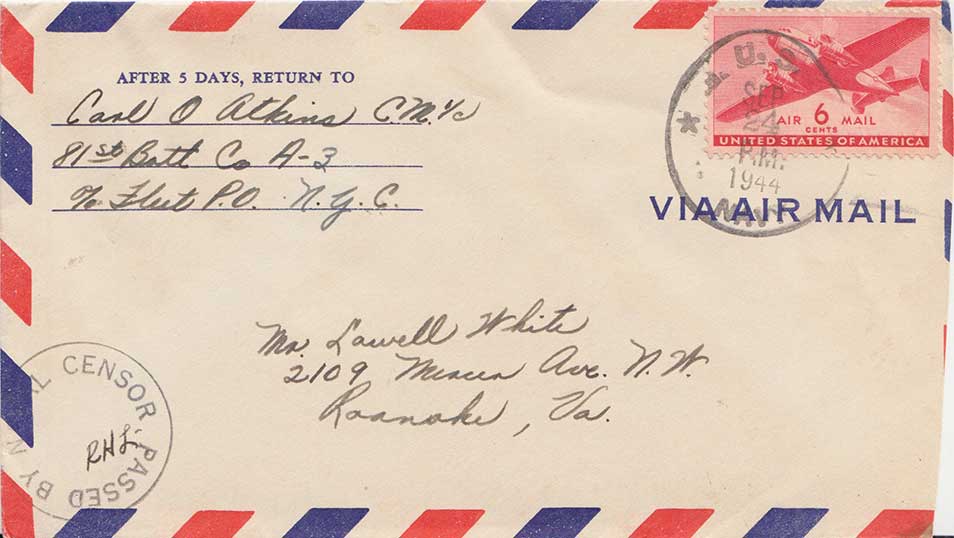 AFTER 5 DAYS, RETURN TO
Carl O Atkins C.M.1/c
81st Batt Co A-3
c/o Fleet P.O. N.Y.C.
U.S.
SEP
24
P.M.
1944
NAVY
AIR 6 MAIL
CENTS
UNITED STATES OF AMERICA
VIA AIR MAIL
Mr. Lowell White
2109 Ave. N.W.
Roanoke, Va.
PASSED BY CENSOR
RHL